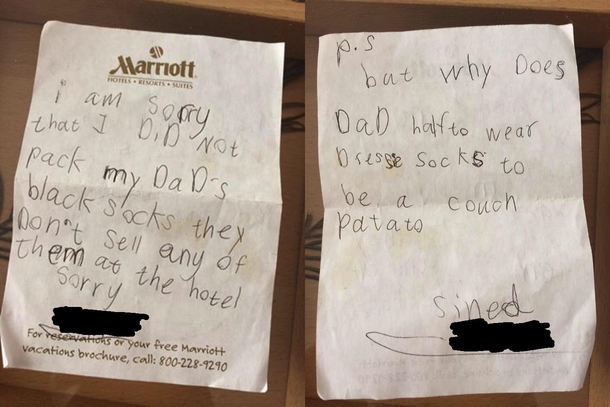 Marriott
HOTELS • RESORTS • SUITES
i am sorry
that I DiD Not
pack my DaD's
black socks they
Don't sell any of
them at the hotel
sorry
For reservations or your free Marriott
vacations brochure, call: 800-228-9290
p.s
but why Does
DaD halfto wear
Dresse socks to
be a couch
patato
sined